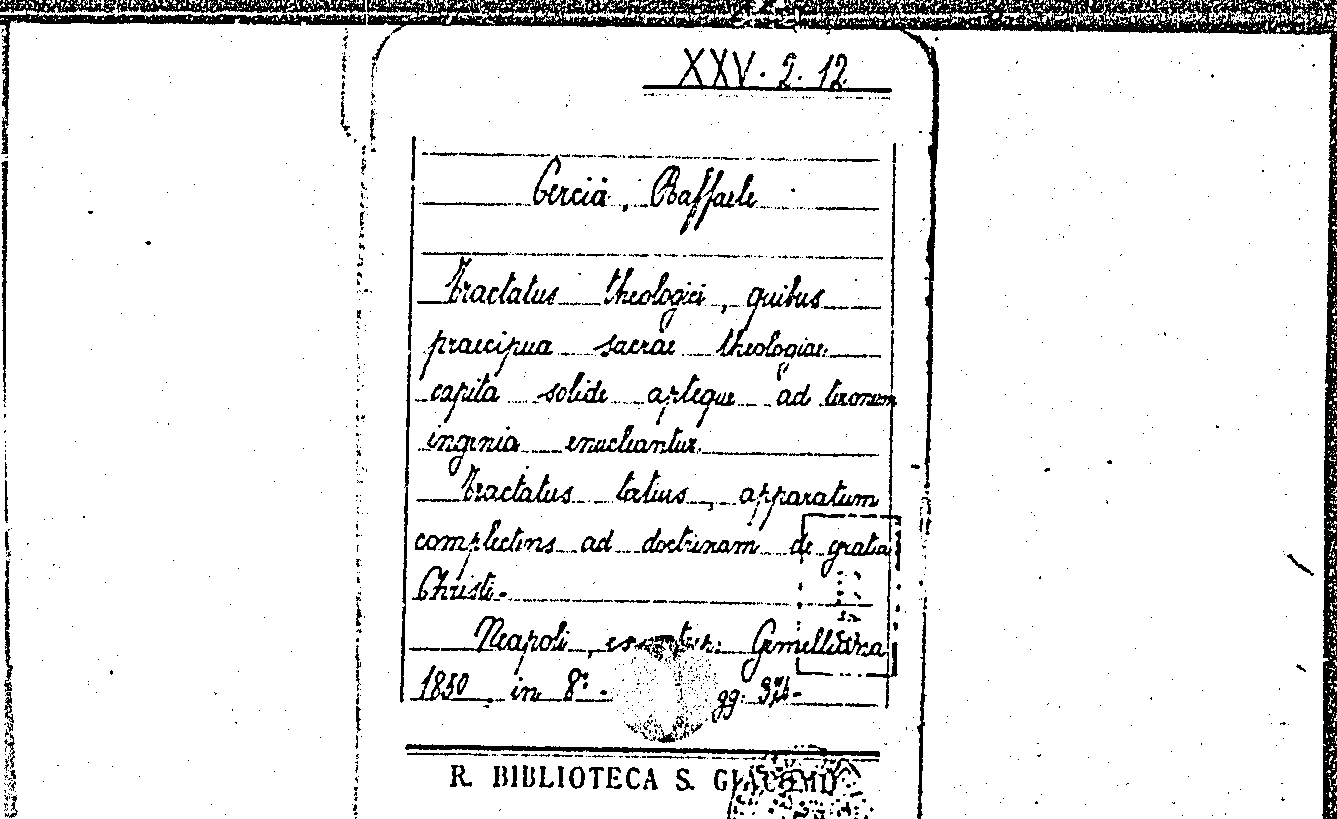 XXV. 2. 12
Cercià, Raffaele
Tractatus theologici, quibus
praecipua sacrae theologiae
capita solide apteque ad tironum
ingenia enucleantur.
Tractatus tertius, apparatum
complectens ad doctrinam de gratia
Christi.
Neapoli, Gemelliana
1850 in 8° -
R. BIBLIOTECA S. GIACOMO